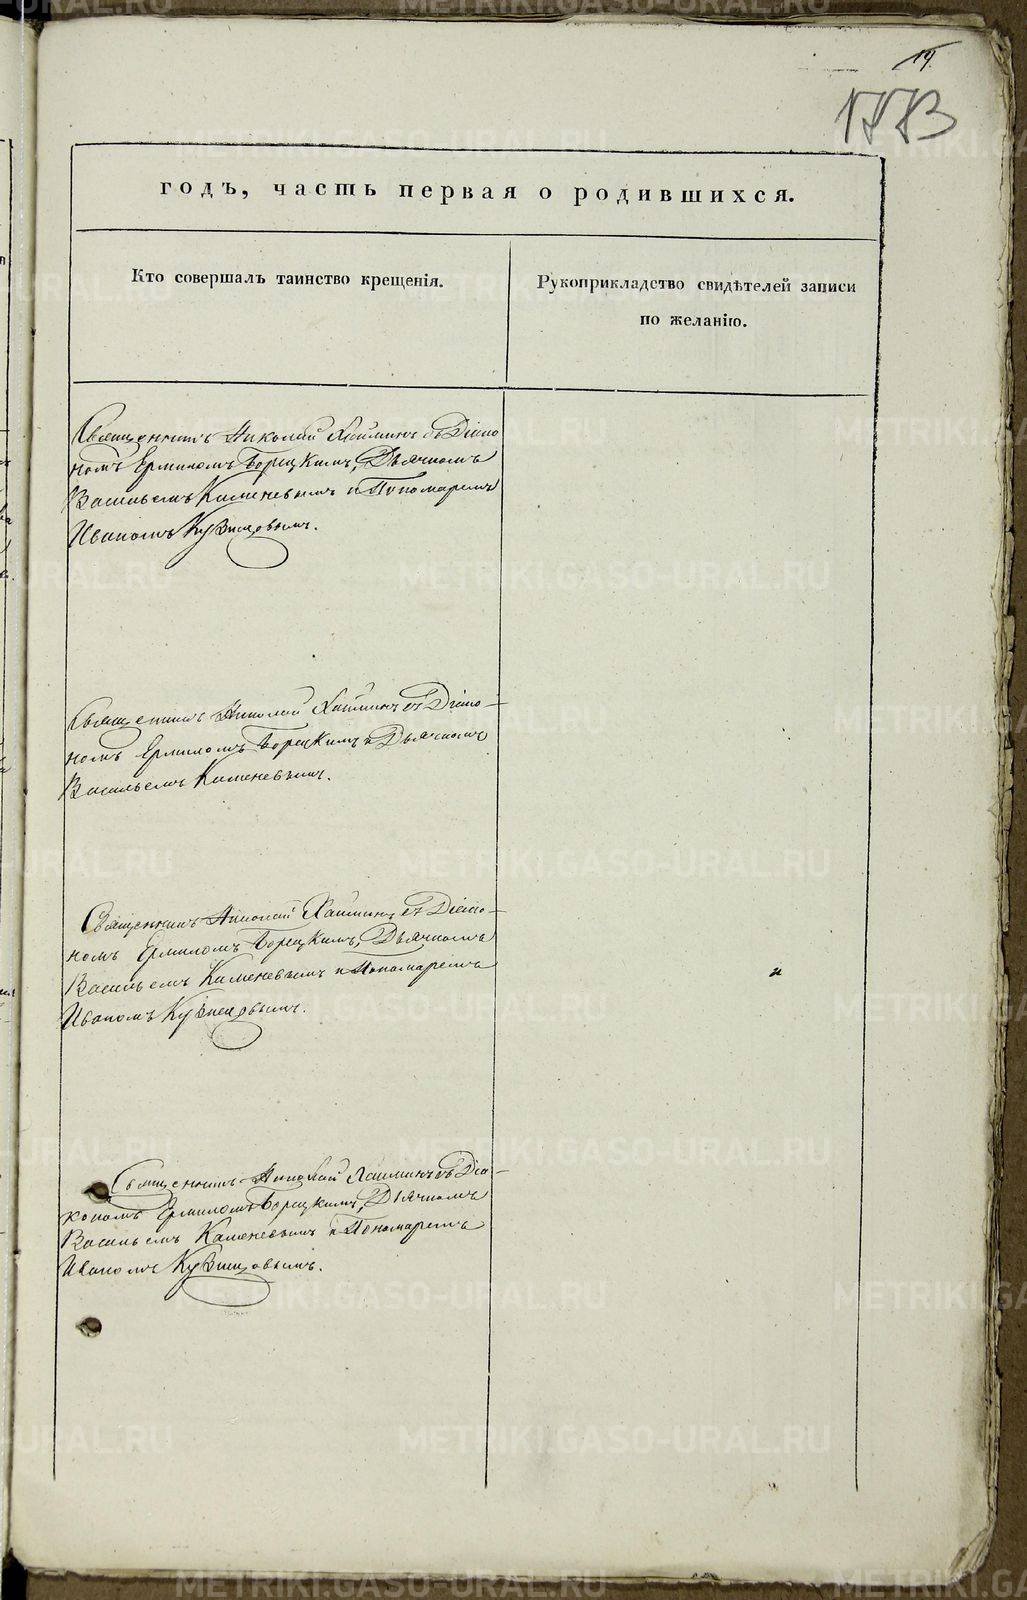 19.
1773
годъ, часть первая о родившихся.
Кто совершалъ таинство крещенія.
Рукоприкладство свидѣтелей записи
по желанію.
Священникъ Николай съ Діако
номъ Ермиломъ Борецкимъ, Дьячкомъ
Васильемъ Каменевымъ и Пономаремъ
Иваномъ Кузнецовымъ.
Священникъ Николай съ Діако-
номъ Ермиломъ Борецкимъ и Дьячкомъ
Васильемъ Каменевымъ.
Священникъ Николай съ Діако-
номъ Ермиломъ Борецкимъ, Дьячкомъ
Васильемъ Каменевымъ и Пономаремъ
Иваномъ Кузнецовымъ.
Священникъ Николай съ Діа-
кономъ Ермиломъ Борецкимъ, Дьячкомъ
Васильемъ Каменевымъ и Пономаремъ
Иваномъ Кузнецовымъ.
METRIKI.GASO-URAL.RU